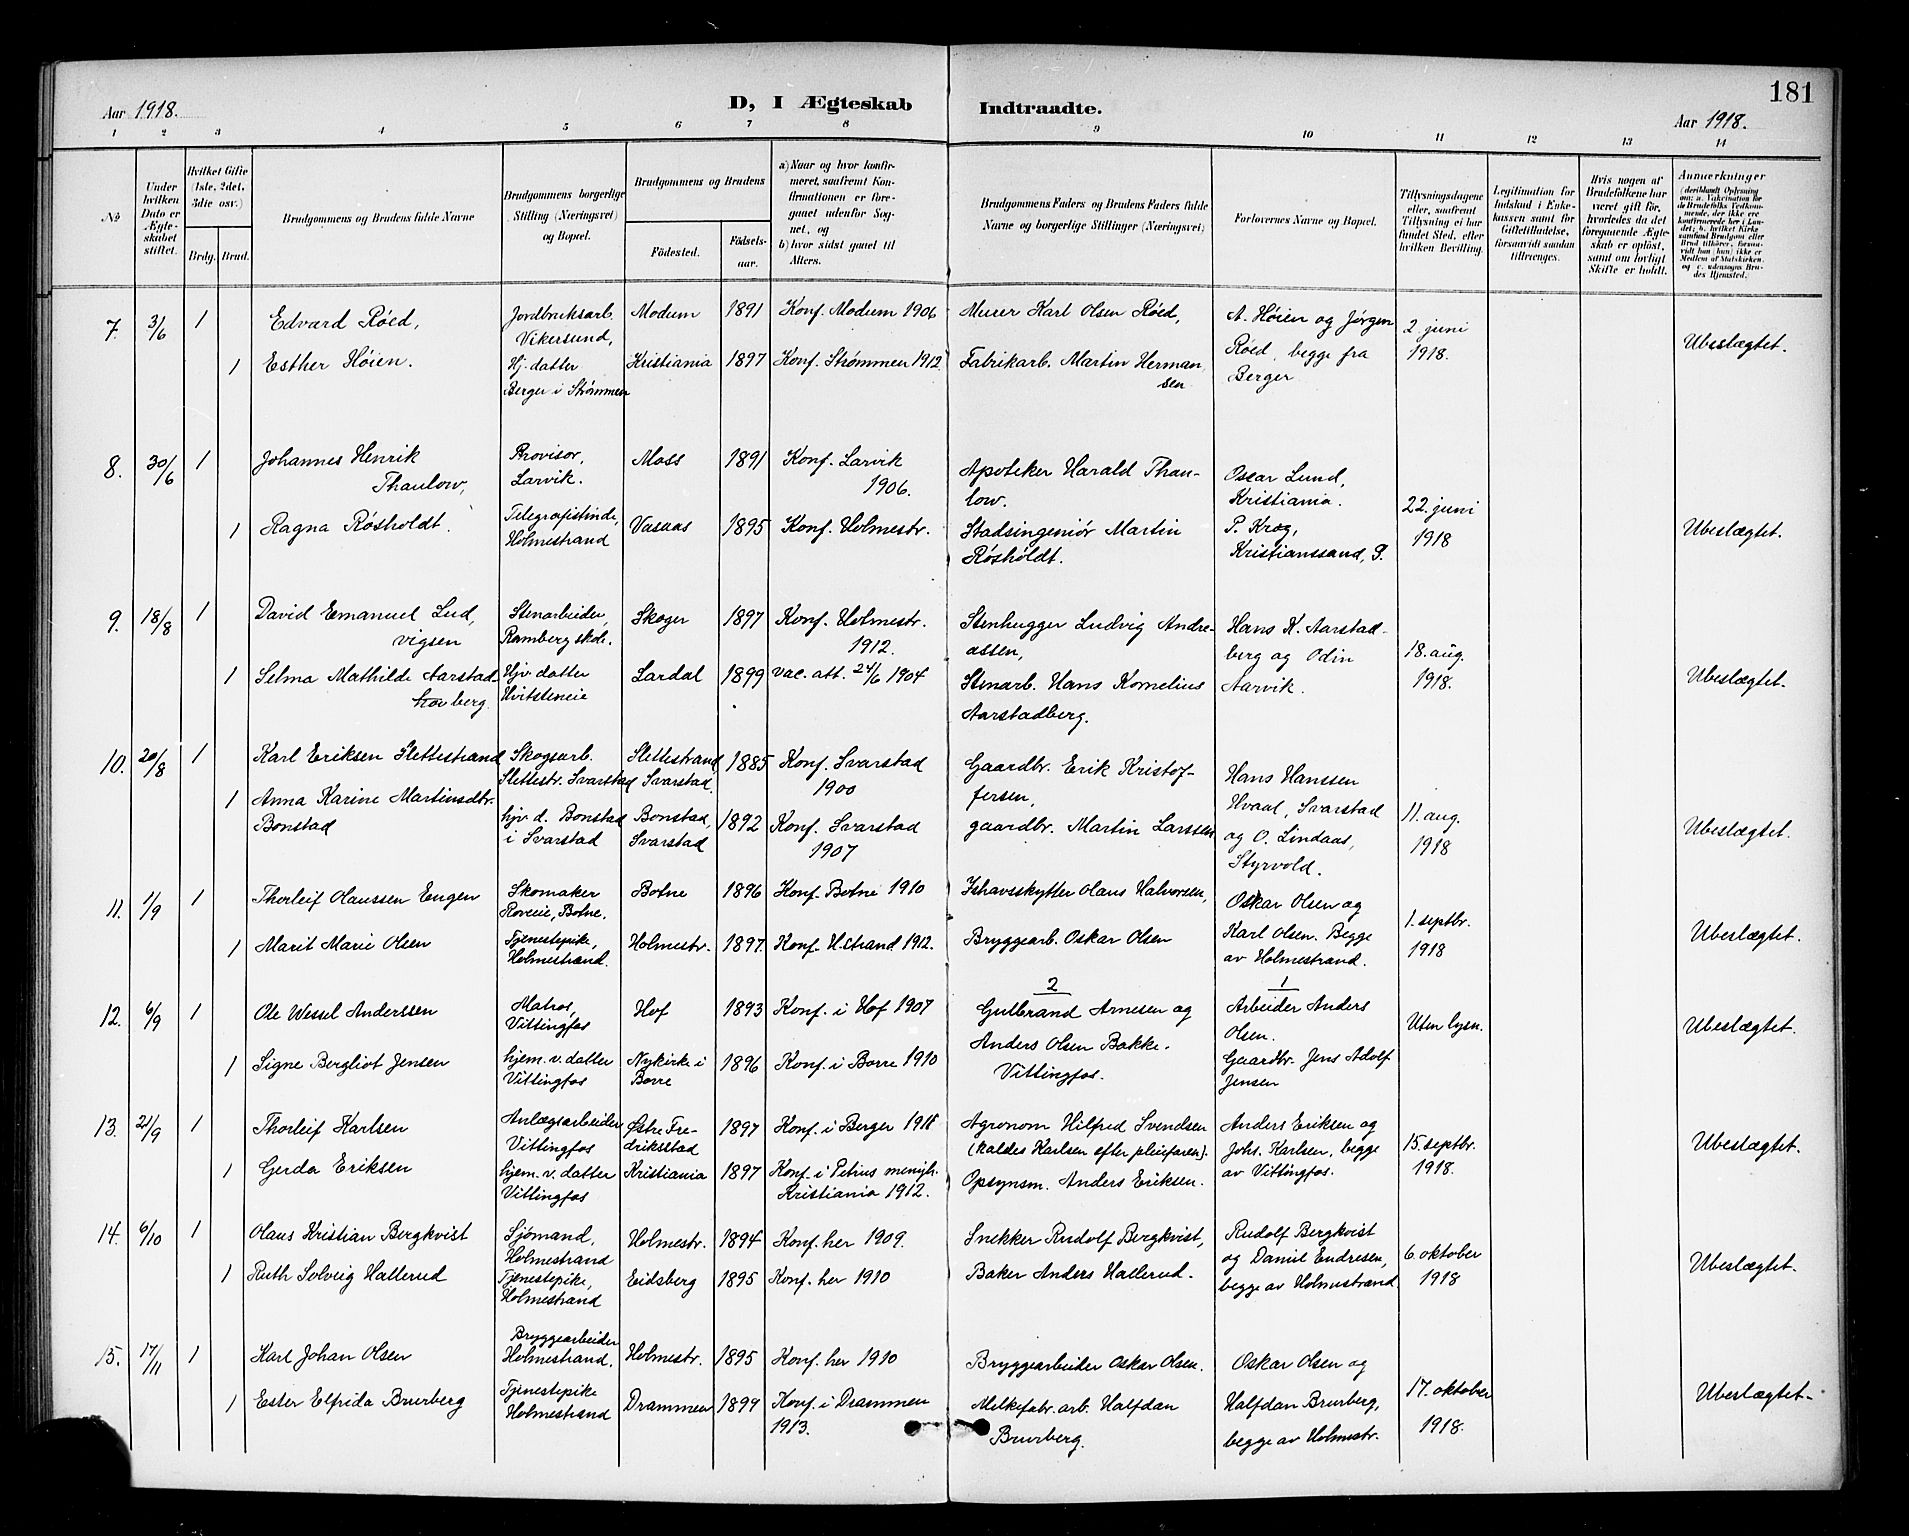 181
D, I Ægteskab Indtraadte.
Aar 1918. Aar 1918.
1 2 3 4 5 6 7 8 9 10 11 12 13 14
№
Under hvilken Dato er Ægteskabet stiftet.
Hvilket Gifte (1ste, 2det, 3die osv.)
Brdg. Brud.
Brudgommens og Brudens fulde Navne
Brudgommens borgerlige Stilling (Næringsvei) og Bopæl.
Brudgommens og Brudens
Fødested. Fødselsaar.
a) Naar og hvor konfirmeret, saafremt Konfirmationen er foregaaet udenfor Sognet, og
b) hvor sidst gaaet til Alters.
Brudgommens Faders og Brudens Faders fulde Navne og borgerlige Stillinger (Næringsvei)
Forlovernes Navne og Bopæl.
Tillysningsdagene eller, saafremt Tillysning ei har fundet Sted, efter hvilken Bevilling.
Legitimation for Indskud i Enkekassen samt for Giftetilladelse, forsaavidt saadan tiltrænges.
Hvis nogen af Brudefolkene har været gift før, hvorledes da det foregaaende Ægteskab er opløst, samt om lovligt Skifte er holdt.
Anmærkninger
7. 3/6 1 Edvard Röed, Jordbruksarb. Vikersund, Modum 1891 Konf. Modum 1906 Murer Karl Olsen Röed, A. Höien og Jörgen Röed, begge fra Berger 2. juni 1918. Ubeslægtet.
1 Esther Höien. Hj. datter Berger i Strømmen Kristiania 1897 Konf. Strømmen 1912 Fabrikarb. Martin Hermansen
8. 30/6 1 Johannes Henrik Thaulow, Provisor, Larvik. Moss 1891 Konf. Larvik 1906. Apoteker Harald Thaulow. Oscar Lund, Kristiania. 22. juni 1918 Ubeslægtet.
1 Ragna Rösholdt. Telegrafistinde, Holmestrand Vasaas 1895 Konf. Holmestr. Stadsingeniör Martin Rösholdt. P. Krog, Kristianssand, S.
9. 18/8 1 David Emanuel Ludvigsen Stenarbeider, Ramberg skole. Skoger 1897 Konf. Holmestr. 1912. Stenhugger Ludvig Andreassen, Hans K. Aarstadberg og Odin Aarvik. 18. aug. 1918. Ubeslægtet.
1 Selma Mathilde Aarstadberg. Hjv. datter Hvitsteneie Lardal 1899 vac. att. 24/6 1904 Stenarb. Hans Kornelius Aarstadberg.
10. 20/8 1 Karl Eriksen Slettestrand Skogsarb. Slettestr. Svarstad Slettestrand, Svarstad. 1885 Konf. Svarstad 1900 Gaardbr. Erik Kristoffersen, Hans Hanssen Hvaal, Svarstad og O. Lindaas, Styrvold. 11. aug. 1918 Ubeslægtet.
1 Anna Karine Martinsdtr. Bonstad hjv. d. Bonstad i Svarstad Bonstad, Svarstad 1892 Konf. Svarstad 1907 gaardbr. Martin Larssen
11. 1/9 1 Thorleif Olaussen Eugen Skomaker Roveie, Botne. Botne 1896 Konf. Botne 1910 Ishavsskytter Olaus Halvorsen, Oskar Olsen og Karl Olsen. Begge av Holmestrand. 1. septbr. 1918 Ubeslægtet.
1 Marit Marie Olsen Tjenestepike, Holmestrand. Holmestr. 1897. Konf. H.strand 1912. Bryggearb. Oskar Olsen
12. 6/9 1 Ole Wessel Anderssen Matros, Vittingfos Hof 1893 Konf. i Hof 1907 2 Gulbrand Arnesen og Anders Olsen Bakke. Vittingfos. 1 Arbeider Anders Olsen. Gaardbr. Jens Adolf Jensen Uten lysn. Ubeslægtet.
1 Signe Bergliot Jensen hjem. v. datter Vittingfos Nykirke i Borre 1896 Konf. i Borre 1910
13. 21/9 1 Thorleif Karlsen Anlægsarbeider Vittingfos Østre Fredriksstad 1897 Konf. i Berger 1911 Agronom Hilfred Svendsen (kaldes Karlsen efter pleiefaren). Anders Eriksen og Johs. Karlsen, begge av Vittingfos. 15. septbr. 1918. Ubeslægtet.
1 Gerda Eriksen hjem. v. datter Vittingfos Kristiania 1897 Konf. i Petrus menigh. Kristiania 1912. Opsynsm. Anders Eriksen.
14. 6/10 1 Olaus Kristian Bergkvist Sjömand, Holmestrand Holmestr. 1894 Konf. her 1909. Snekker Rudolf Bergkvist, Rudolf Bergkvist og Daniel Endresen, begge av Holmestrand 6. oktober 1918 Ubeslægtet.
1 Ruth Solveig Hallerud Tjenestepike, Holmestrand Eidsberg 1895 Konf. her 1910 Baker Anders Hallerud.
15. 17/11 1 Karl Johan Olsen Bryggearbeider Holmestrand, Holmestr. 1895 Konf. her 1910 Bryggearbeider Oskar Olsen. Oskar Olsen og Halfdan Brurberg, begge av Holmestr. 17. oktober 1918. Ubeslægtet.
1 Ester Elfrida Brurberg Tjenestepike Holmestrand Drammen 1899 Konf. i Drammen 1913. Melkefabr. arb. Halfdan Brurberg.